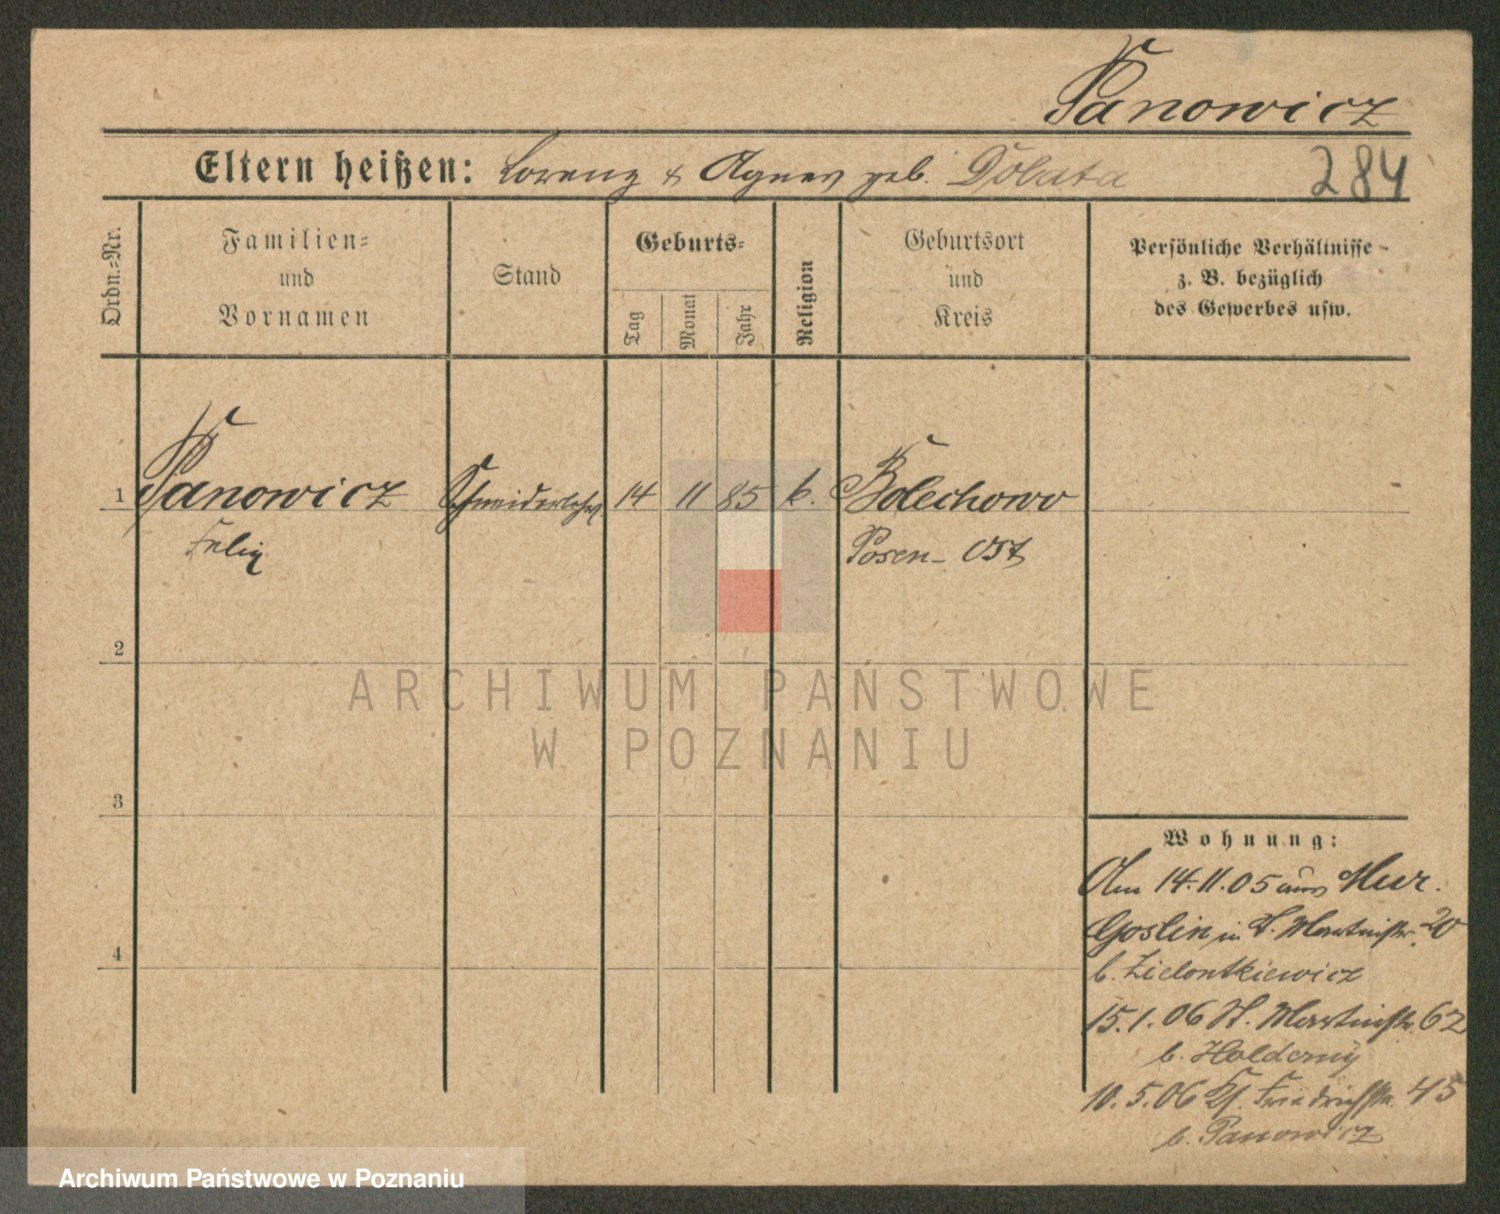 Panowicz
Eltern heißen: Lorenz & Agnes geb. Dobata
284
Ordn.-Nr.
Familien-
und
Vornamen
Stand
Geburts-
Tag
Monat
Jahr
Religion
Geburtsort
und
Kreis
Persönliche Verhältnisse
z. B. bezüglich
des Gewerbes usw.
1 Panowicz Schneiderlehrl 14 11 85 k. Bolechowo
Felix Posen-Ost
2
3
4
Wohnung:
Am 14.11.05 aus Mur.
Goslin in St. Martinstr. 20
b. Zielontkiewicz
15.1.06 St. Martinstr. 62
b. Holderny
10.5.06 Friedrichstr. 45
b. Panowicz
ARCHIWUM PAŃSTWOWE
W POZNANIU
Archiwum Państwowe w Poznaniu